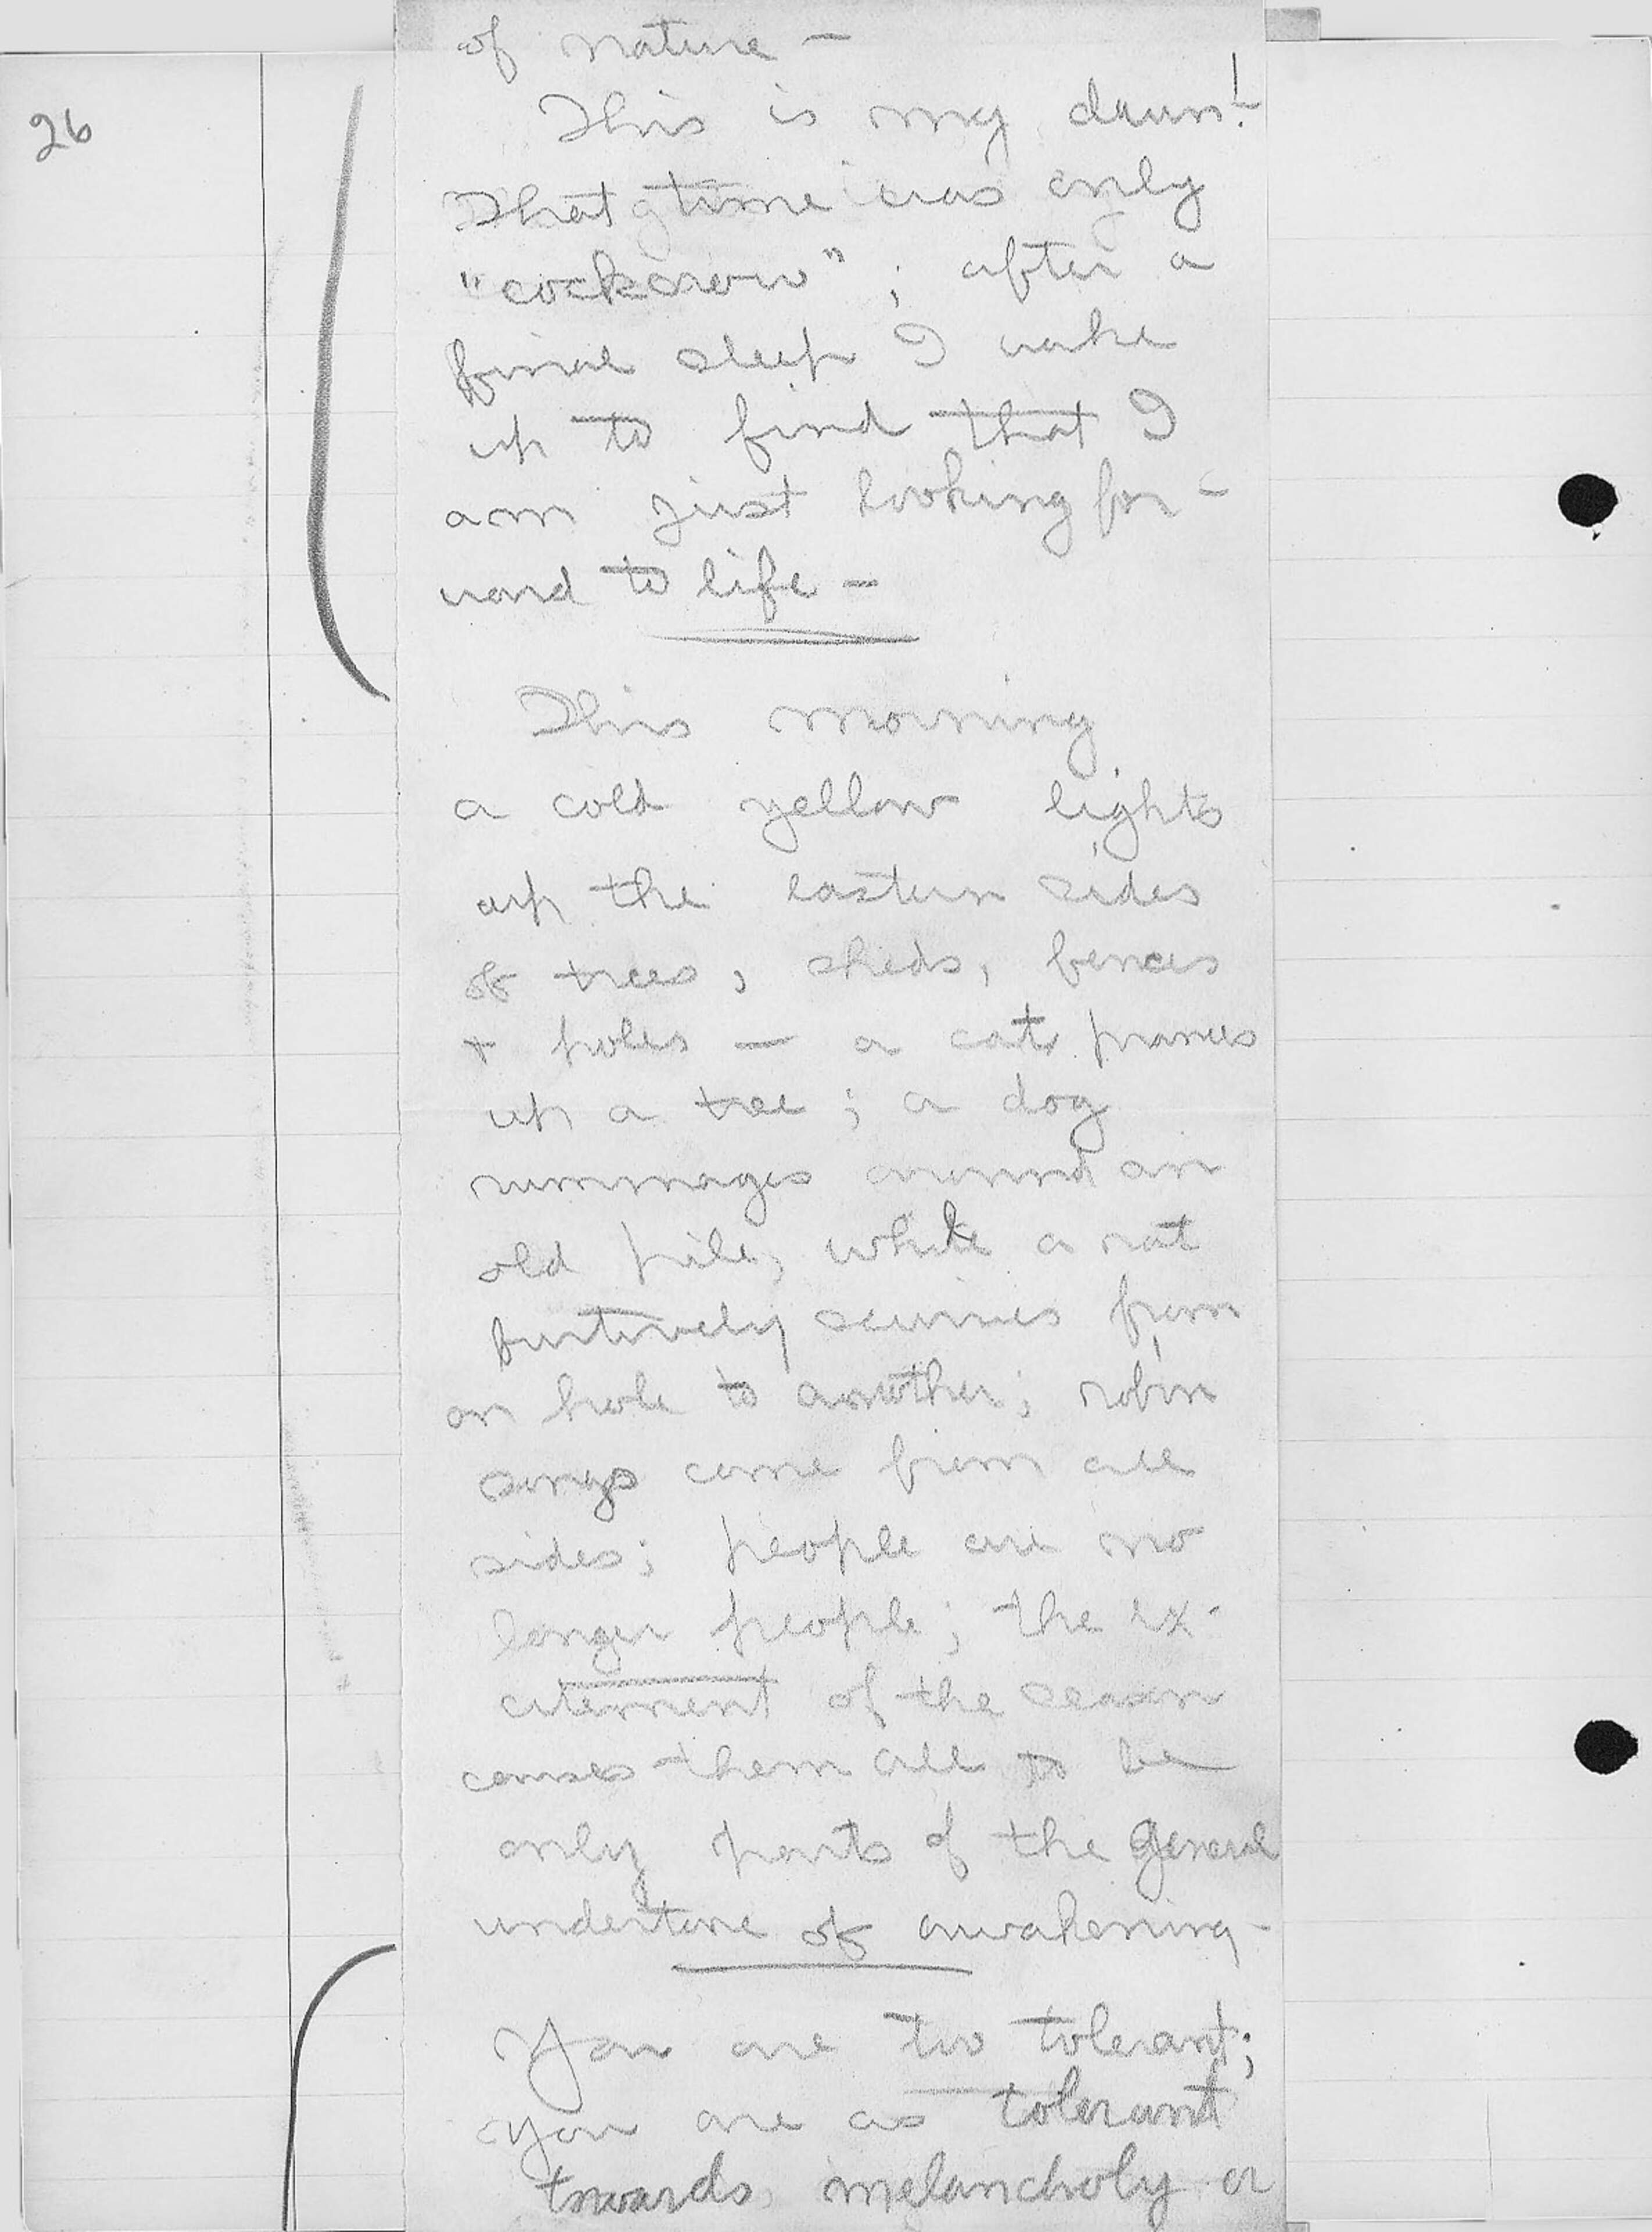 26
of nature —
This is my dawn! —
That time was only
"cockcrow"; after a
final sleep I wake
up to find that I
am just looking for-
ward to life —
This morning
a cold yellow lights
up the eastern sides
of trees, sheds, fences
+ poles — a cat prances
up a tree; a dog
rummages around an
old pile, while a rat
furtively scurries from
on hole to another; robin
songs come from all
sides; people are no
longer people; the ex-
citement of the season
causes them all to be
only parts of the general
undertone of awakening —
You are too tolerant;
you are as tolerant
towards melancholy or